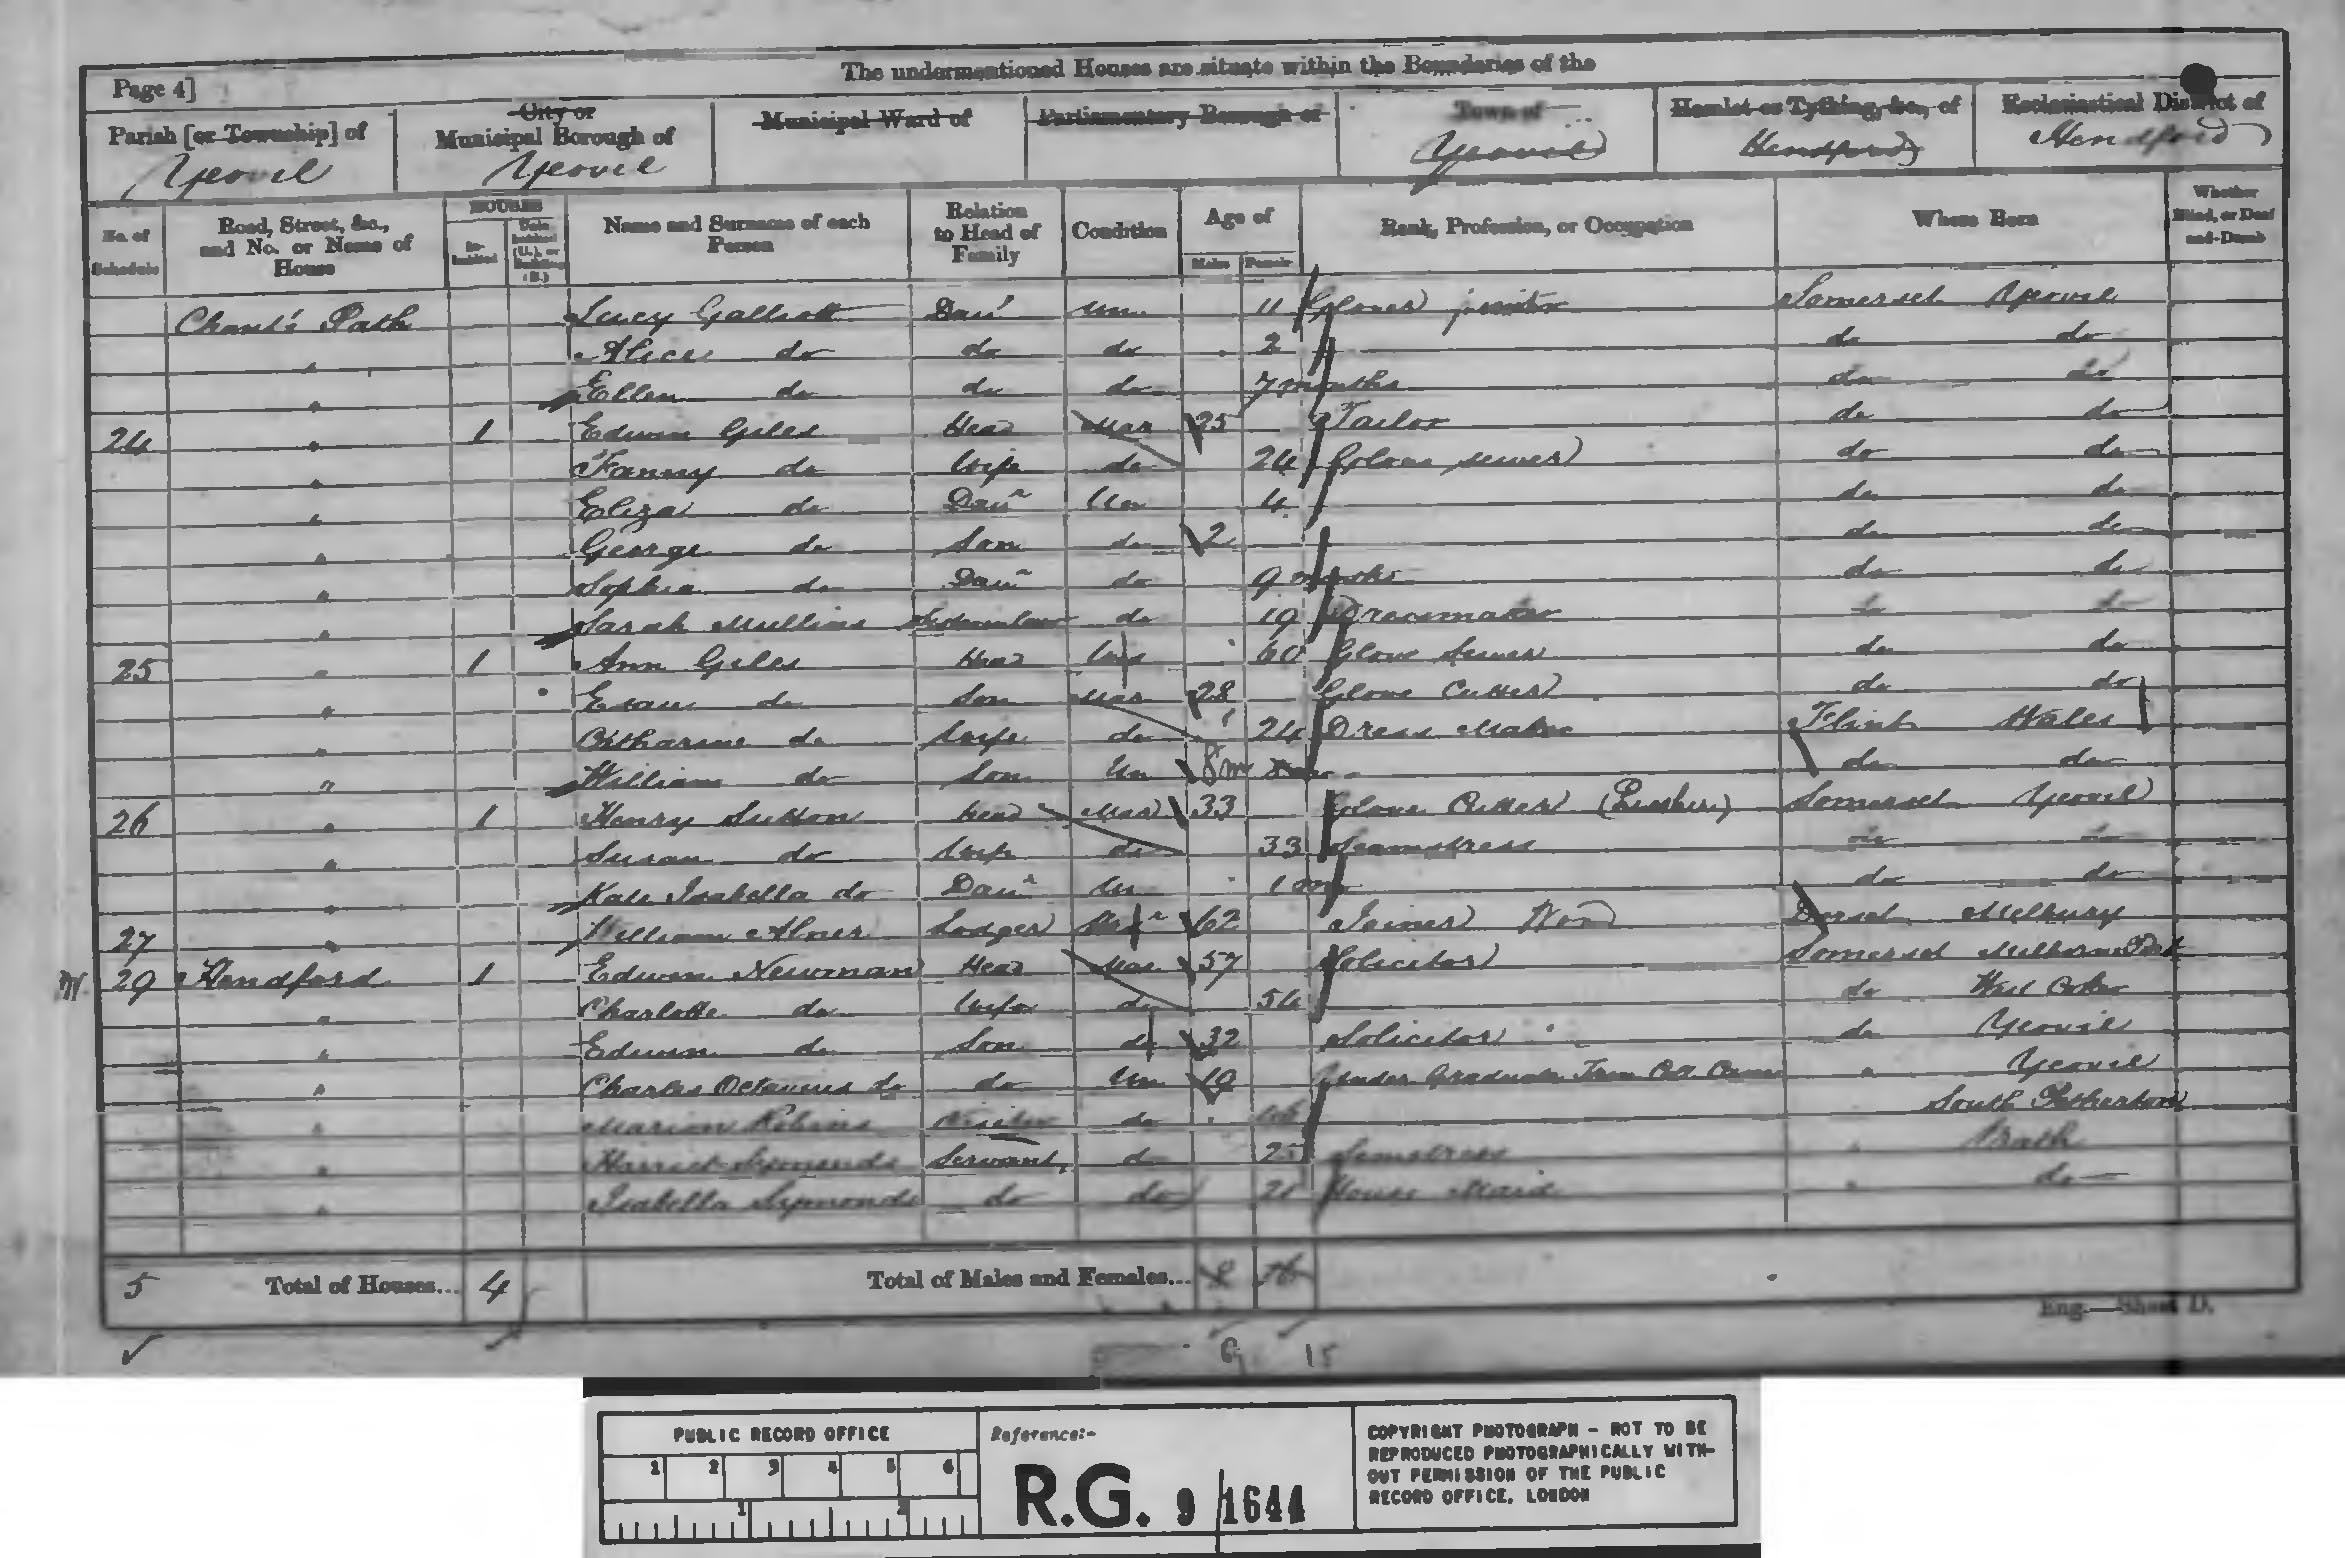 The undermentioned Houses are situate within the Boundaries of the
Page 4]
Parish [or Township] of Yeovil
City or Municipal Borough of Yeovil
Municipal Ward of
Parliamentary Borough of
Town of Yeovil
Hamlet or Tything, &c., of Hendford
Ecclesiastical District of Hendford
No. of Schedule
Road, Street, &c., and No. or Name of House
HOUSES
In-habited
Unin-habited (U.), or Building (B.)
Name and Surname of each Person
Relation to Head of Family
Condition
Age of
Males
Females
Rank, Profession, or Occupation
Where Born
Whether Blind, or Deaf-and-Dumb
Chant's Path Lucy Gallpott Daur Un 11 Glover Somerset Yeovil
" Alice do do do 2 do do
" Ellen do do do 7 months do do
24 " 1 Edwin Giles Head Mar 25 Tailor do do
" Fanny do Wife do 24 Glove sewer do do
" Eliza do Daur Un 4 do do
" George do Son do 2 do do
" Sophia do Daur do 9 months do do
" Sarah Mullins Sister in law do 19 Dressmaker do do
25 " 1 Ann Giles Head Wid 60 Glove Sewer do do
" Evan do Son Mar 28 Glove Cutter do do
" Catharine do Wife do 24 Dress Maker Flint Wales
" William do Son Un 8m do do
26 " 1 Henry Sutton Head Mar 33 Glove Cutter Somerset Yeovil
" Susan do Wife do 33 Seamstress do do
" Kate Isabella do Daur Un 10m do do
27 " William Abner Lodger 62 Joiner Dorset Melbury
29 Hendford 1 Edwin Newman Head Mar 57 Solicitor Somerset Milborne Port
" Charlotte do Wife do 54 do West Coker
" Edwin do Son do 32 Solicitor do Yeovil
" Charles Octavius do do Un 19 Under Graduate Trin Col Cam " Yeovil
" Marion Robins Visitor do 16 South Petherton
" Harriet Symonds Servant do 25 Semstress " Bath
" Isabella Symonds do do 21 House Maid " do
5 Total of Houses... 4 Total of Males and Females...
Eng.—Sheet D.
9 15
PUBLIC RECORD OFFICE
1 2 3 4 5 6
1 2
Reference:-
R.G. 9/1644
COPYRIGHT PHOTOGRAPH – NOT TO BE
REPRODUCED PHOTOGRAPHICALLY WITH-
OUT PERMISSION OF THE PUBLIC
RECORD OFFICE, LONDON